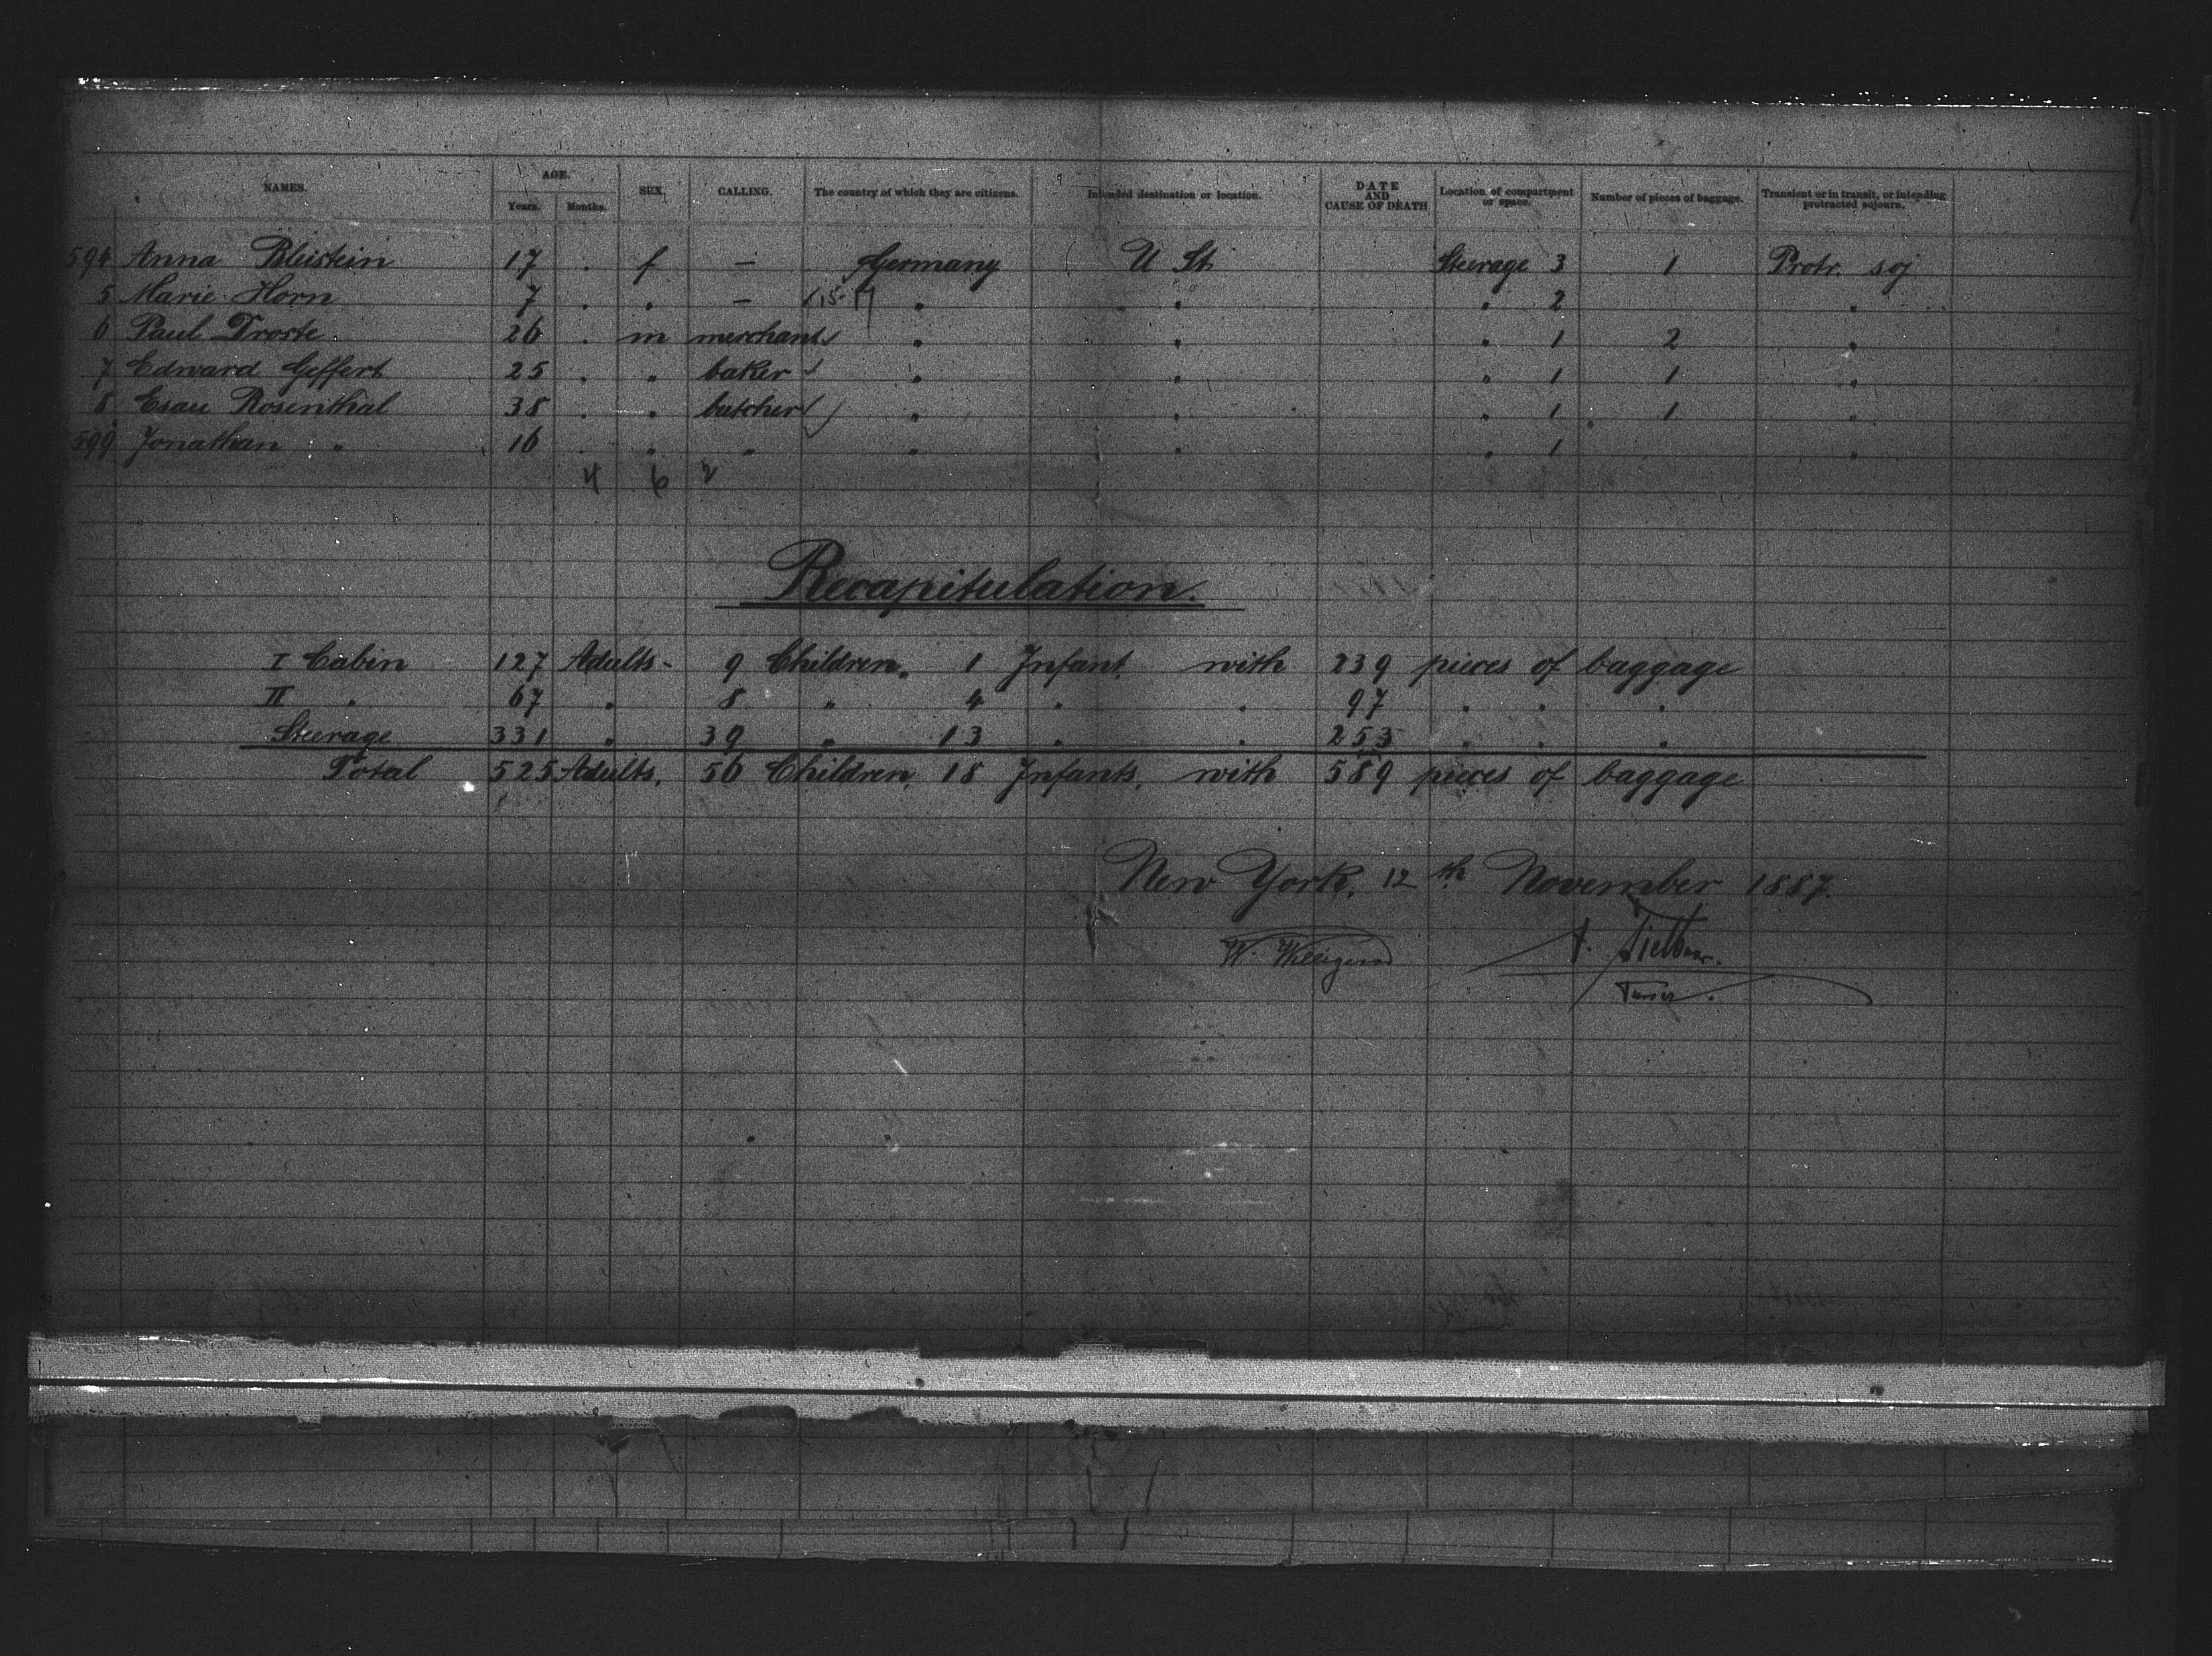 NAMES. AGE. SEX. CALLING. The country of which they are citizens. Intended destination or location. DATE AND CAUSE OF DEATH Location of compartment or space. Number of pieces of baggage. Transient or in transit, or intending protracted sojourn.
Years. Months.
594 Anna Bleistein 17 . f — Germany U St. Steerage 3 1 Protr. soj
5 Marie Horn 7 . " — " " " 2 "
6 Paul Droste 26 . m merchant " " " 1 2 "
7 Edward Geffert 25 . " baker " " " 1 1 "
8 Esau Rosenthal 38 . " butcher " " " 1 1 "
599 Jonathan " 16 . " " " " " 1 "
4 6 2
Recapitulation.
I Cabin 127 Adults - 9 Children, 1 Infant, with 239 pieces of baggage
II " 67 " 8 " 4 " " 97 " " "
Steerage 331 " 39 " 13 " " 253 " " "
Total 525 Adults, 56 Children, 18 Infants, with 589 pieces of baggage
New York, 12th November 1887.
W.